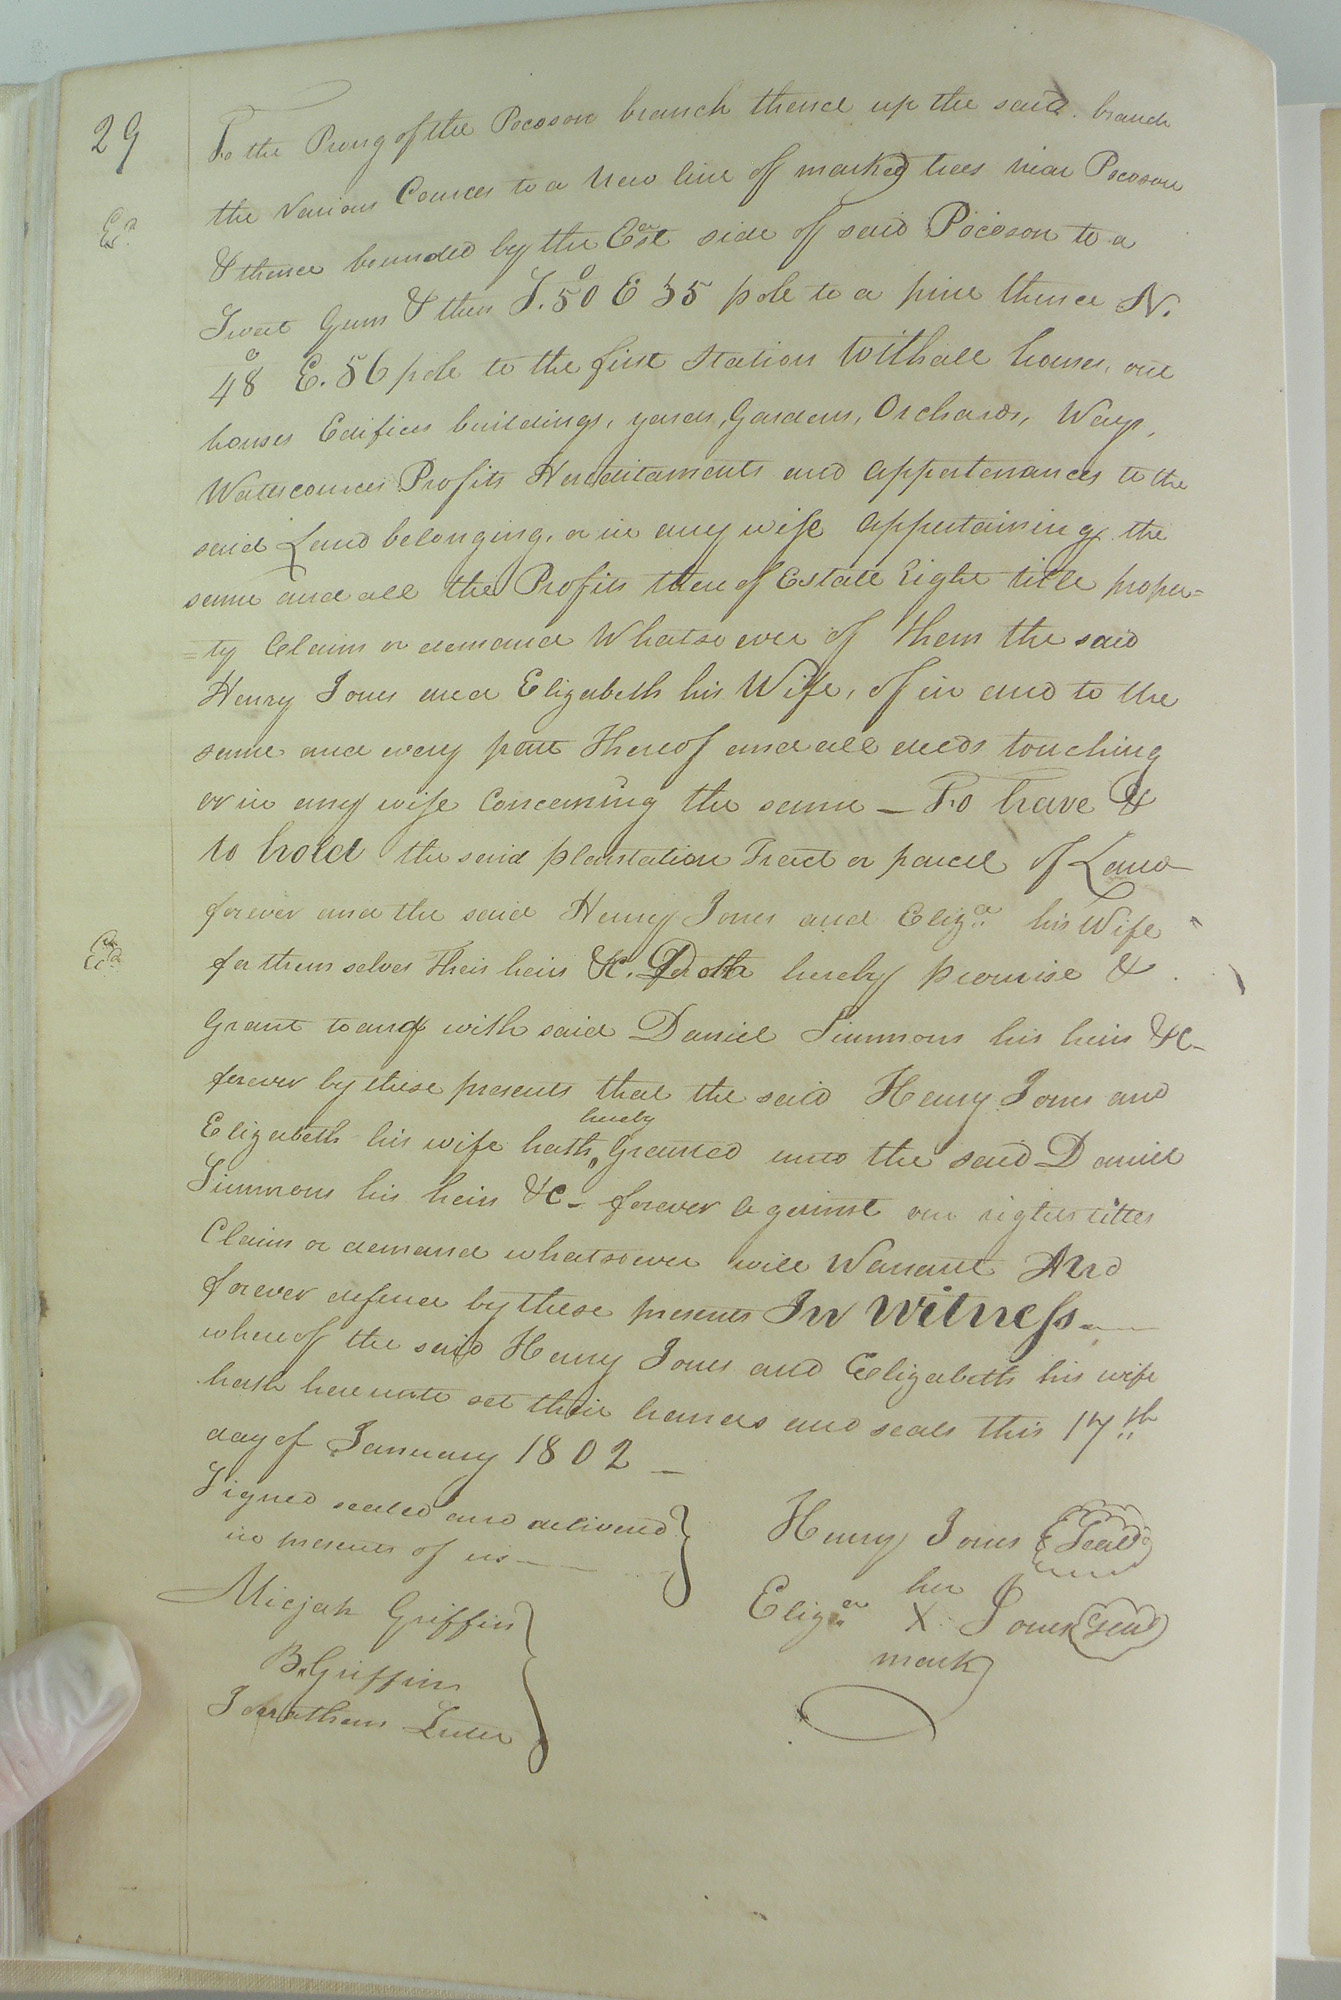 29
To the Prong of the Pocoson branch thence up the said branch
the Various Cources to a New line of marked trees near Pocoson
& thence bounded by the East side of said Pocoson to a
Sweet Gum & then S. 50° E 35 pole to a pine thence N.
48° E. 56 pole to the first Station With all houses, out
houses Edifices buildings, yards, Gardens, Orchards, Ways,
Watercources Profits Hereditaments and appertenances to the
said Land belonging, or in any wise appertaining the
same and all the Profits there of Estate right title proper=
=ty Claim or demand Whatsoever of them the said
Henry Jones and Elizabeth his Wife, of in and to the
same and every part thereof and all deeds touching
or in any wise Concerning the same – To have &
to hold the said plantation Tract or parcel of Land
forever and the said Henry Jones and Eliza his Wife
for themselves their heirs &C. Doth hereby promise &
Grant to and with said Daniel Simmons his heirs &C–
forever by these presents that the said Henry Jones and
hereby
Elizabeth his wife hath Granted unto the said Daniel
Simmons his heirs &C – forever against our rights titles
Claim or demand whatsoever will Warrant And
forever defend by these presents In Witness
whereof the said Henry Jones and Elizabeth his wife
hath hereunto set their hands and seals this 17th
day of January 1802 –
Signed sealed and delivered
in presents of us
Henry Jones Seal
her
Eliza X Jones Seal
mark
Micjah Griffin
B. Griffin
Jonathan Luter